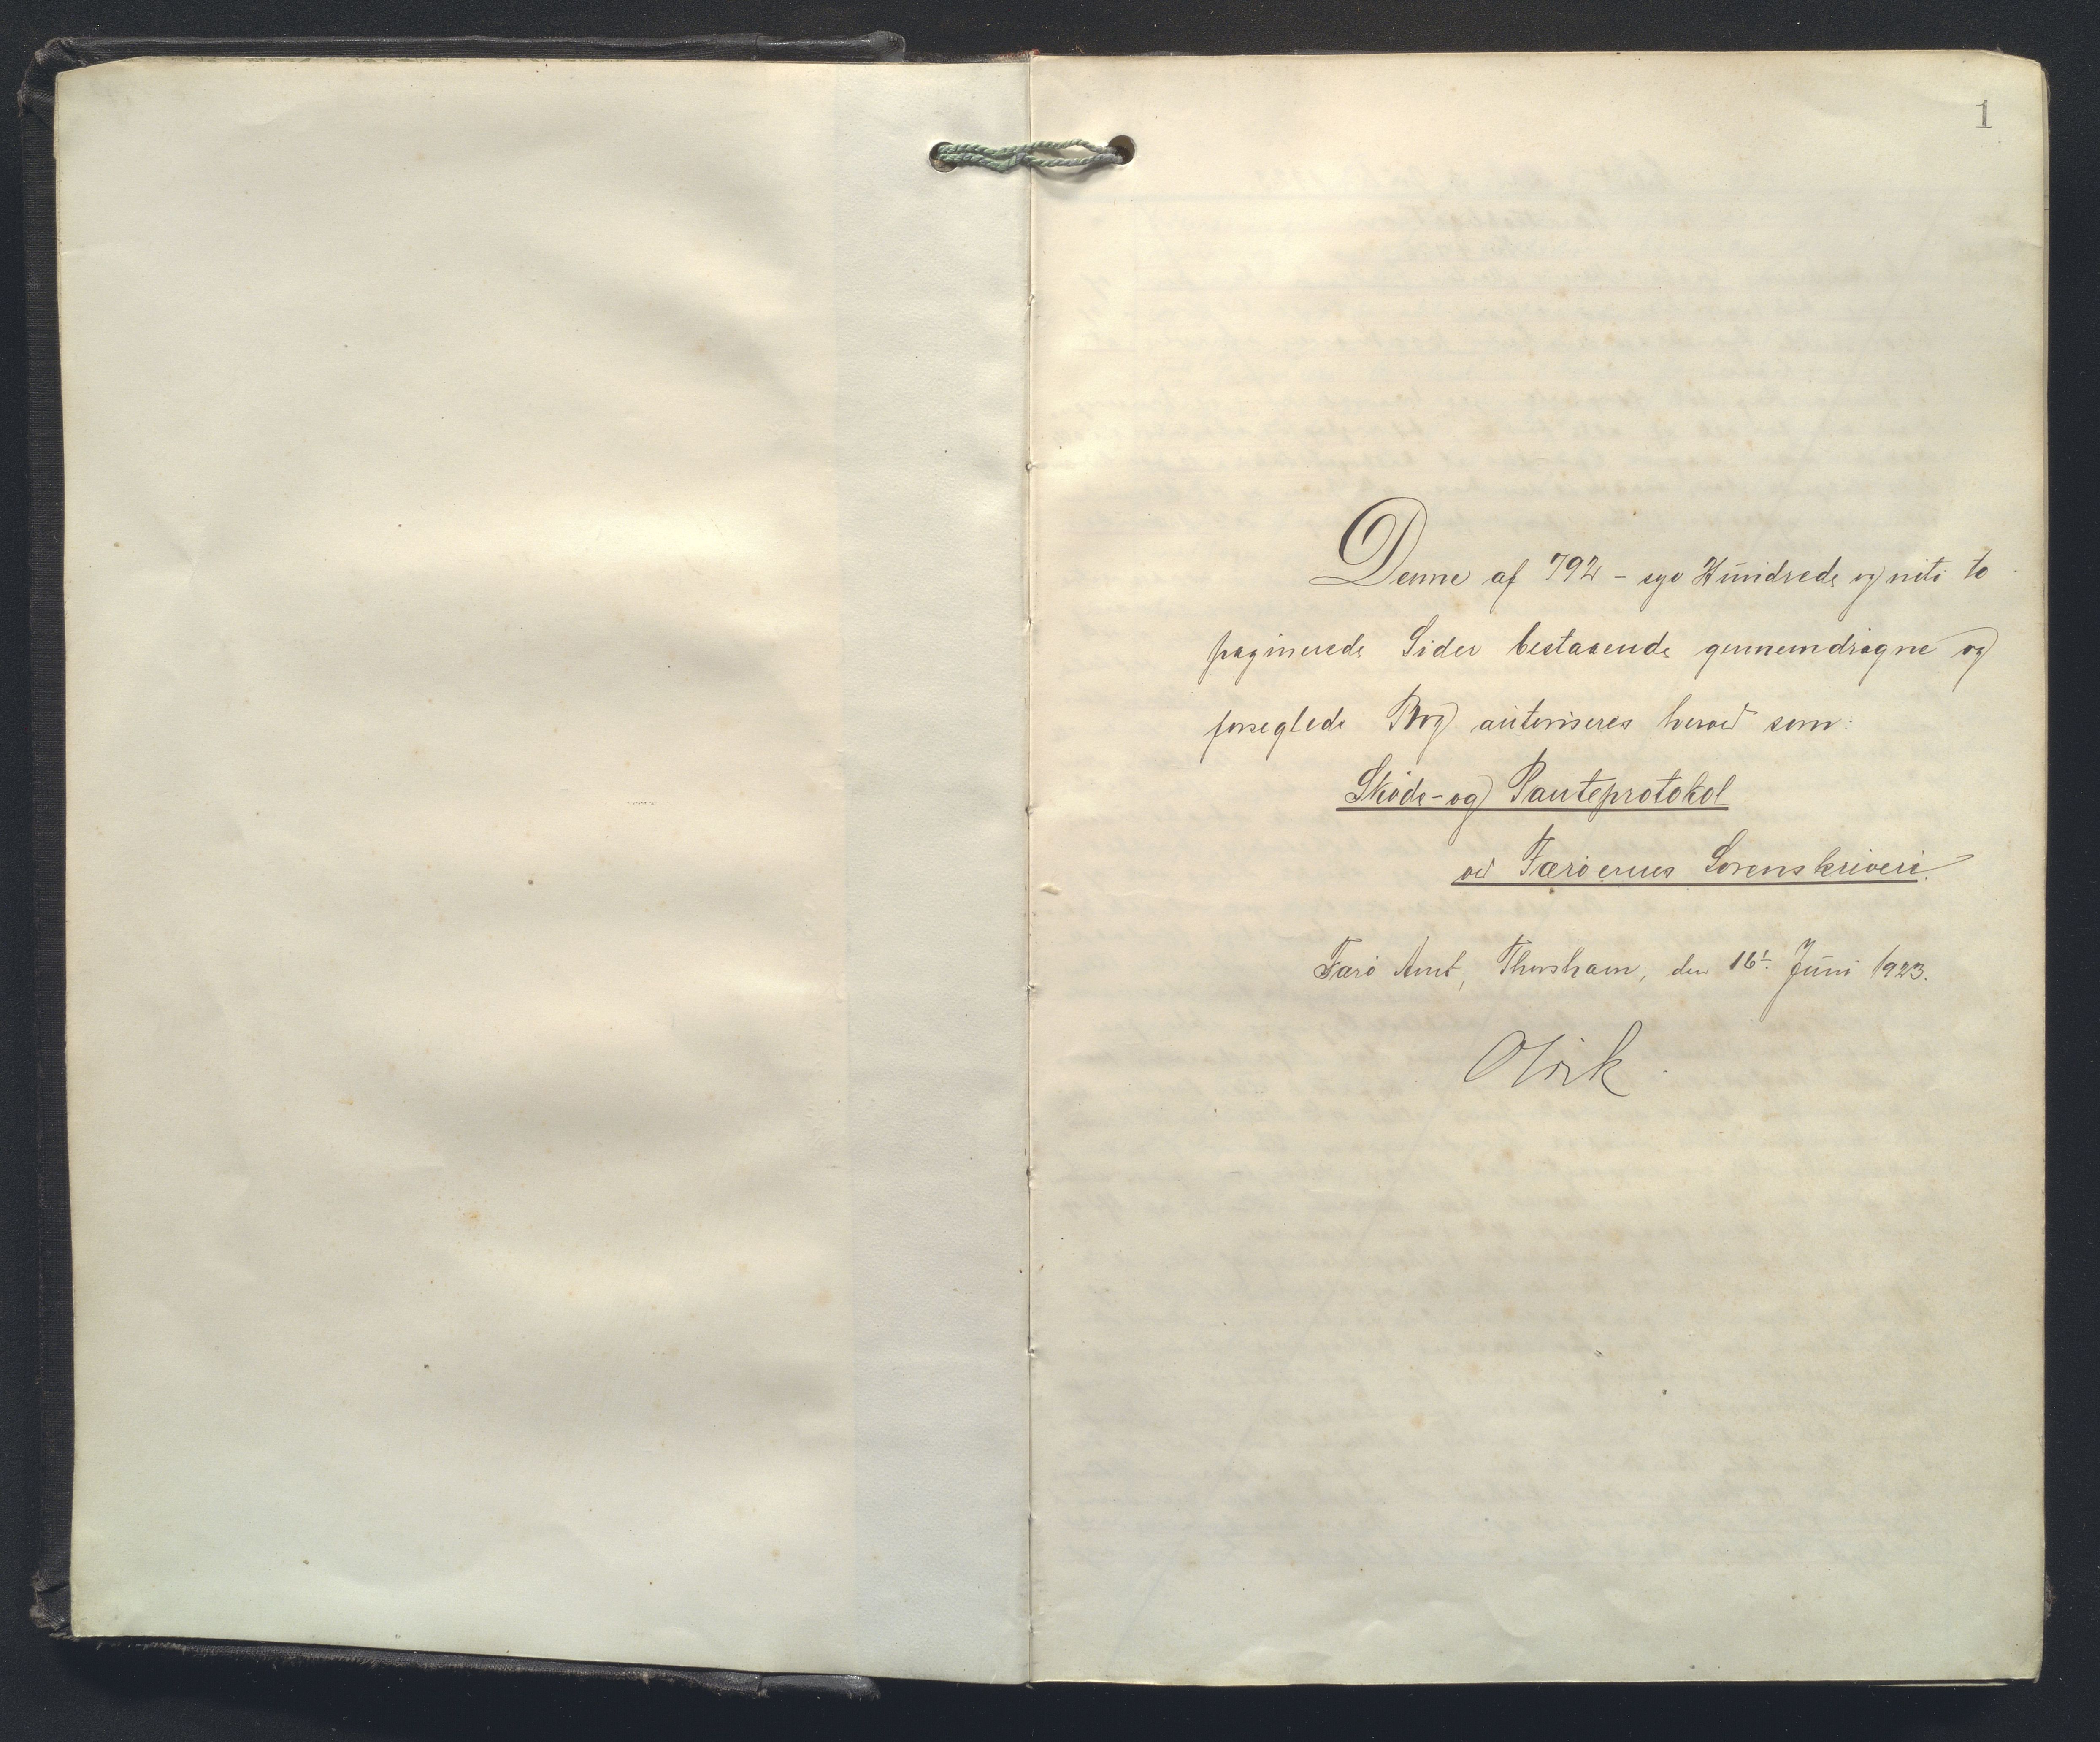 1
Denne af 792 - syv Hundrede og niti to
paginerede Sider bestaaende gennemdragne og
forseglede Bog autoriseres herved som:
Skøde- og Panteprotokol
ved Færøernes Sorenskriveri.
Færø Amt, Thorshavn, den 16' Juni 1923.